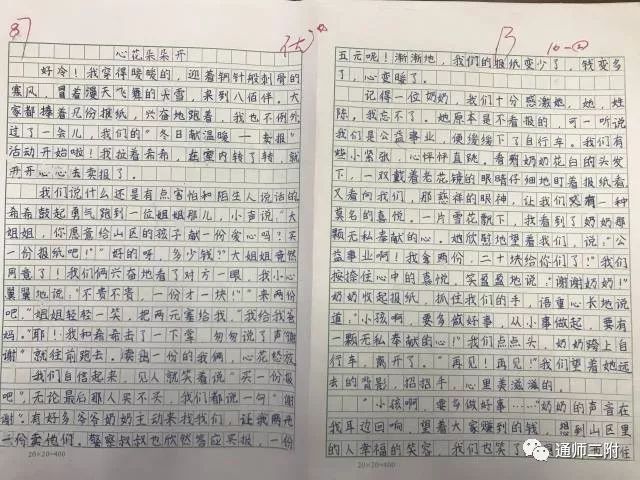 87
心花朵朵开
好冷！我穿得暖暖的，迎着钢针般刺骨的
寒风，冒着漫天飞舞的大雪，来到八佰伴。大
家都捧着几份报纸，兴奋地跳着，我也不例外
过了一会儿，我们的“冬日献温暖——卖报”
活动开始啦！我拉着希希，在室内转了转，就
开开心心去卖报了。
我们说什么还是有点害怕和陌生人说话的
希希鼓起勇气跑到一位姐姐那儿，小声说“大
姐姐，你愿意给山区的孩子献一份爱心吗？买
一份报纸吧！”“好的呀，多少钱？”大姐姐竟然
同意了！我们俩兴奋地看了对方一眼，我小心
翼翼地说：“不贵不贵，一份才一块！”“来两份
吧”姐姐轻轻一笑，把两元塞给我，“我给我爸
妈。”“耶！我和希希击了一下掌，匆匆说了声“谢
谢”就往前跑去。卖出一份的我俩，心花怒放
我们自信起来，见人就笑着说“买一份报
吧”，无论最后那人买不买，我们都说一句“谢
谢”。有好多爷爷奶奶主动来找我们，让我两元
一份卖他们。警察叔叔也欣然答应买报，一份
20×20=400
13
10-
五元呢！渐渐地，我们的报纸变少了，钱变多
了，心变暖了。
记得一位奶奶，我们十分感激她，她，姓
陈，我忘不了。她原本是不看报的，可一听说
我们是公益事业，便缓缓下了自行车。我们有
些小紧张，心怦怦直跳。看着奶奶花白的头发
下，一双戴着老花镜的眼睛仔细地盯着报纸看，
又看向我们，那慈祥的眼神，让我们有一种
莫名的喜悦。一片雪花飘下，我看到了奶奶那
颗无私奉献的心。她欣慰地望着我们，说：“公
益事业啊！我拿两份，二十块给你们了！”我们
按捺住心中的喜悦，笑盈盈地说：“谢谢奶奶！”
奶奶收起报纸，抓住我们的手，语重心长地说
道，“小孩啊，要多做好事，从小事做起，要有
一颗无私奉献的心！”我们点点头，奶奶跨上自
行车，离开了。“再见！再见！”我们望着她远
去的背影，招招手，心里美滋滋的。
“小孩啊，要多做好事……”奶奶的声音在
我耳边回响，望着大家赚到的钱，想到山区里
的人幸福的笑容，我们也笑了
20×20=400
通师三附